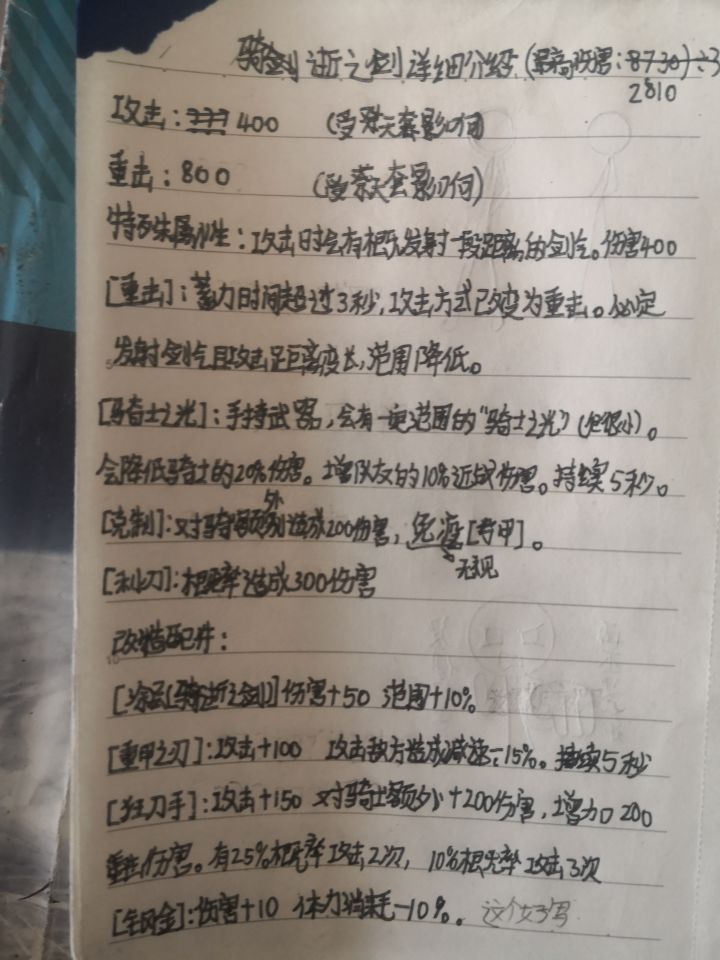 骑剑逝之剑详细介绍(最高伤害:8730)÷3
2810
攻击:400 (受蔡天套影响)
重击:800 (受蔡天套影响)
特殊属性:攻击时会有概率发射一段距离的剑气。伤害400
[重击]:蓄力时间超过3秒,攻击方式改变为重击。必定
发射剑气且攻击距离变长,范围降低。
[骑士之光]:手持武器,会有一定范围的“骑士之光”(但很小)。
会降低骑士的20%伤害。增队友的10%近战伤害。持续5秒。
[克制]:对骑士额外造成200伤害,免疫[弯甲]。
无视
[利刀]:概率造成300伤害
改造配件:
[涂品[骑逝之剑]]伤害+50 范围+10%
[重甲之刃]:攻击+100 攻击敌方造成减速-15%。持续5秒
[狂刀手]:攻击+150 对骑士额外+200伤害,增加200
重击伤害。有25%概率攻击2次,10%概率攻击3次
[钢金]:伤害+10 体力消耗-10%。这个好写